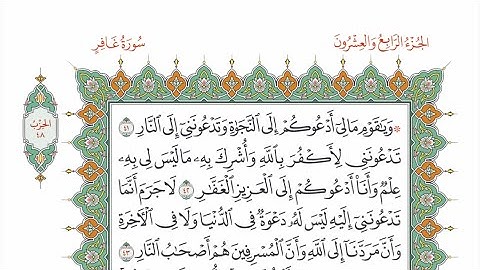 الجُزْءُ الرَّابِعُ وَالعِشْرُونَ
سُورَةُ غَافِرٍ
الحِزْبُ
٤٨
۞ وَيَٰقَوْمِ مَالِىٓ أَدْعُوكُمْ إِلَى ٱلنَّجَوٰةِ وَتَدْعُونَنِىٓ إِلَى ٱلنَّارِ ٤١
تَدْعُونَنِى لِأَكْفُرَ بِٱللَّهِ وَأُشْرِكَ بِهِۦ مَا لَيْسَ لِى بِهِۦ
عِلْمٌ وَأَنَا۠ أَدْعُوكُمْ إِلَى ٱلْعَزِيزِ ٱلْغَفَّٰرِ ٤٢ لَا جَرَمَ أَنَّمَا
تَدْعُونَنِىٓ إِلَيْهِ لَيْسَ لَهُۥ دَعْوَةٌ فِى ٱلدُّنْيَا وَلَا فِى ٱلْءَاخِرَةِ
وَأَنَّ مَرَدَّنَآ إِلَى ٱللَّهِ وَأَنَّ ٱلْمُسْرِفِينَ هُمْ أَصْحَٰبُ ٱلنَّارِ ٤٣